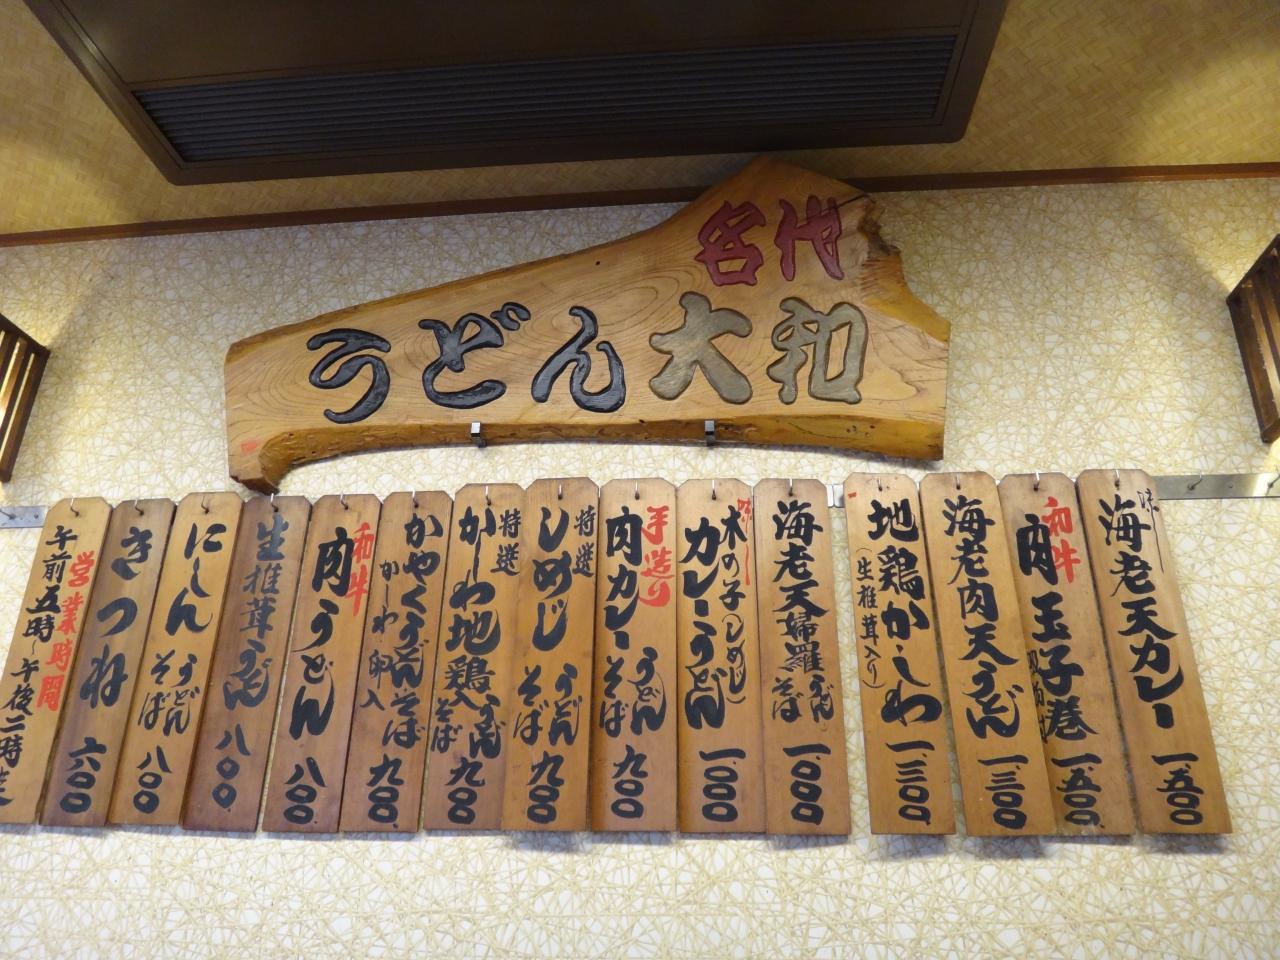 名代
うどん大和
営業時間
午前五時～午後二時迄
きつね 六〇〇
にしん うどん そば 八〇〇
生椎茸うどん 八〇〇
和牛
肉うどん 八〇〇
かやくうどんそば 九〇〇
かしわ 卵入
特選
かしわ地鶏入うどんそば 九〇〇
特選
しめじ うどん そば 九〇〇
手造り
肉カレー うどん そば 九〇〇
木の子(しめじ)
カレーうどん 一、〇〇〇
海老天婦羅うどんそば 一、〇〇〇
地鶏かしわ 一、三〇〇
(生椎茸入り)
海老肉天うどん 一、三〇〇
和牛
肉玉子巻 一、五〇〇
海老天カレー 一、五〇〇